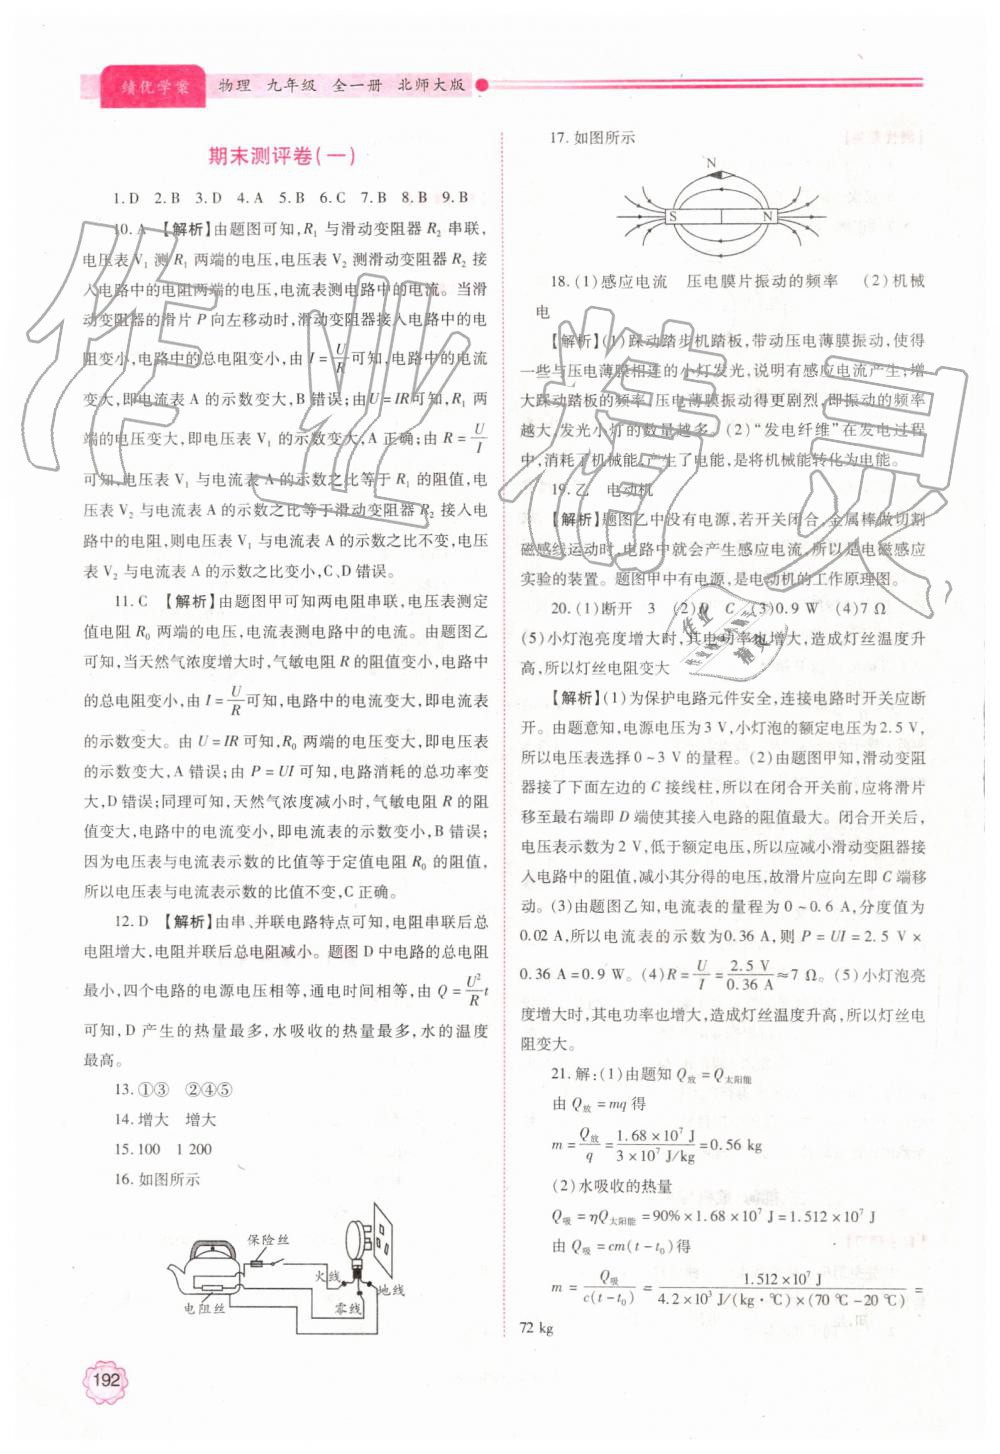 绩优学案
物理 九年级 全一册 北师大版
期末测评卷(一)
1.D 2.B 3.D 4.A 5.B 6.C 7.B 8.B 9.B
10.A 【解析】由题图可知,R₁ 与滑动变阻器 R₂ 串联,
电压表 V₁ 测 R₁ 两端的电压,电压表 V₂ 测滑动变阻器 R₂ 接
入电路中的电阻两端的电压,电流表测电路中的电流。当滑
动变阻器的滑片 P 向左移动时,滑动变阻器接入电路中的电
阻变小,电路中的总电阻变小,由 I=U/R 可知,电路中的电流
变大,即电流表 A 的示数变大,B 错误;由U=IR可知,R₁ 两
端的电压变大,即电压表 V₁ 的示数变大,A 正确;由 R=U/I
可知,电压表 V₁ 与电流表 A 的示数之比等于 R₁ 的阻值,电
压表 V₂ 与电流表 A 的示数之比等于滑动变阻器 R₂ 接入电
路中的电阻,则电压表 V₁ 与电流表 A 的示数之比不变,电压
表 V₂ 与电流表 A 的示数之比变小,C、D 错误。
11.C 【解析】由题图甲可知两电阻串联,电压表测定
值电阻 R₀ 两端的电压,电流表测电路中的电流。由题图乙
可知,当天然气浓度增大时,气敏电阻 R 的阻值变小,电路中
的总电阻变小,由 I=U/R可知,电路中的电流变大,即电流表
的示数变大。由 U=IR 可知,R₀ 两端的电压变大,即电压表
的示数变大,A 错误;由 P=UI 可知,电路消耗的总功率变
大,D 错误;同理可知,天然气浓度减小时,气敏电阻 R 的阻
值变大,电路中的电流变小,即电流表的示数变小,B 错误;
因为电压表与电流表示数的比值等于定值电阻 R₀ 的阻值,
所以电压表与电流表示数的比值不变,C 正确。
12.D 【解析】由串、并联电路特点可知,电阻串联后总
电阻增大,电阻并联后总电阻减小。题图 D 中电路的总电阻
最小,四个电路的电源电压相等,通电时间相等,由 Q=U²/R t
可知,D 产生的热量最多,水吸收的热量最多,水的温度
最高。
13.①③ ②④⑤
14.增大 增大
15.100 1 200
16.如图所示
保险丝
火线
地线
电阻丝
零线
192
17.如图所示
N
S N
18.(1)感应电流 压电膜片振动的频率 (2)机械
电
【解析】(1)踩动踏步机踏板,带动压电薄膜振动,使得
一些与压电薄膜相连的小灯发光,说明有感应电流产生;增
大踩动踏板的频率,压电薄膜振动得更剧烈,即振动的频率
越大,发光小灯的数量越多。(2)“发电纤维”在发电过程
中,消耗了机械能,产生了电能,是将机械能转化为电能。
19.乙 电动机
【解析】题图乙中没有电源,若开关闭合,金属棒做切割
磁感线运动时,电路中就会产生感应电流,所以是电磁感应
实验的装置。题图甲中有电源,是电动机的工作原理图。
20.(1)断开 3 (2)D C (3)0.9 W (4)7 Ω
(5)小灯泡亮度增大时,其电功率也增大,造成灯丝温度升
高,所以灯丝电阻变大
【解析】(1)为保护电路元件安全,连接电路时开关应断
开。由题意知,电源电压为 3 V,小灯泡的额定电压为 2.5 V,
所以电压表选择 0~3 V 的量程。(2)由题图甲知,滑动变阻
器接了下面左边的 C 接线柱,所以在闭合开关前,应将滑片
移至最右端即 D 端使其接入电路的阻值最大。闭合开关后,
电压表示数为 2 V,低于额定电压,所以应减小滑动变阻器接
入电路中的阻值,减小其分得的电压,故滑片应向左即 C 端移
动。(3)由题图乙知,电流表的量程为 0~0.6 A,分度值为
0.02 A,所以电流表的示数为0.36 A,则 P=UI=2.5 V×
0.36 A=0.9 W。(4)R=U/I=2.5 V/0.36 A≈7 Ω。(5)小灯泡亮
度增大时,其电功率也增大,造成灯丝温度升高,所以灯丝电
阻变大。
21.解:(1)由题知 Q放=Q太阳能
由 Q放=mq 得
m=Q放/q=1.68×10⁷ J/3×10⁷ J/kg=0.56 kg
(2)水吸收的热量
Q吸=ηQ太阳能=90%×1.68×10⁷ J=1.512×10⁷ J
由 Q吸=cm(t-t₀)得
m=Q吸/c(t-t₀)=1.512×10⁷ J/4.2×10³ J/(kg·℃)×(70 ℃-20 ℃)=
72 kg
作业精灵